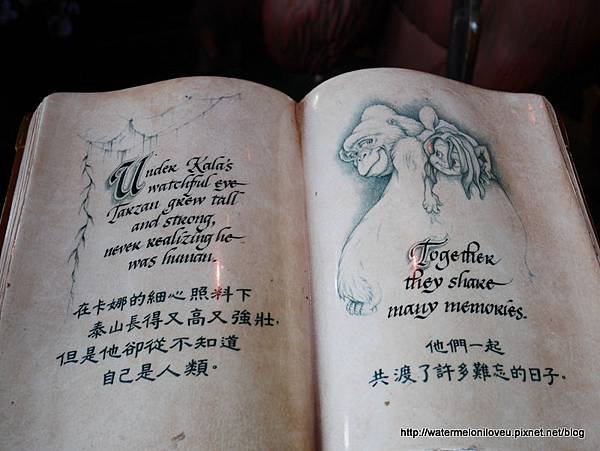 Under Kala's
watchful eye
Tarzan grew tall
and strong,
never realizing he
was human.
在卡娜的細心照料下
泰山長得又高又強壯,
但是他卻從不知道
自己是人類。
Together
they share
many memories.
他們一起
共渡了許多難忘的日子。
http://watermeloniloveu.pixnet.net/blog